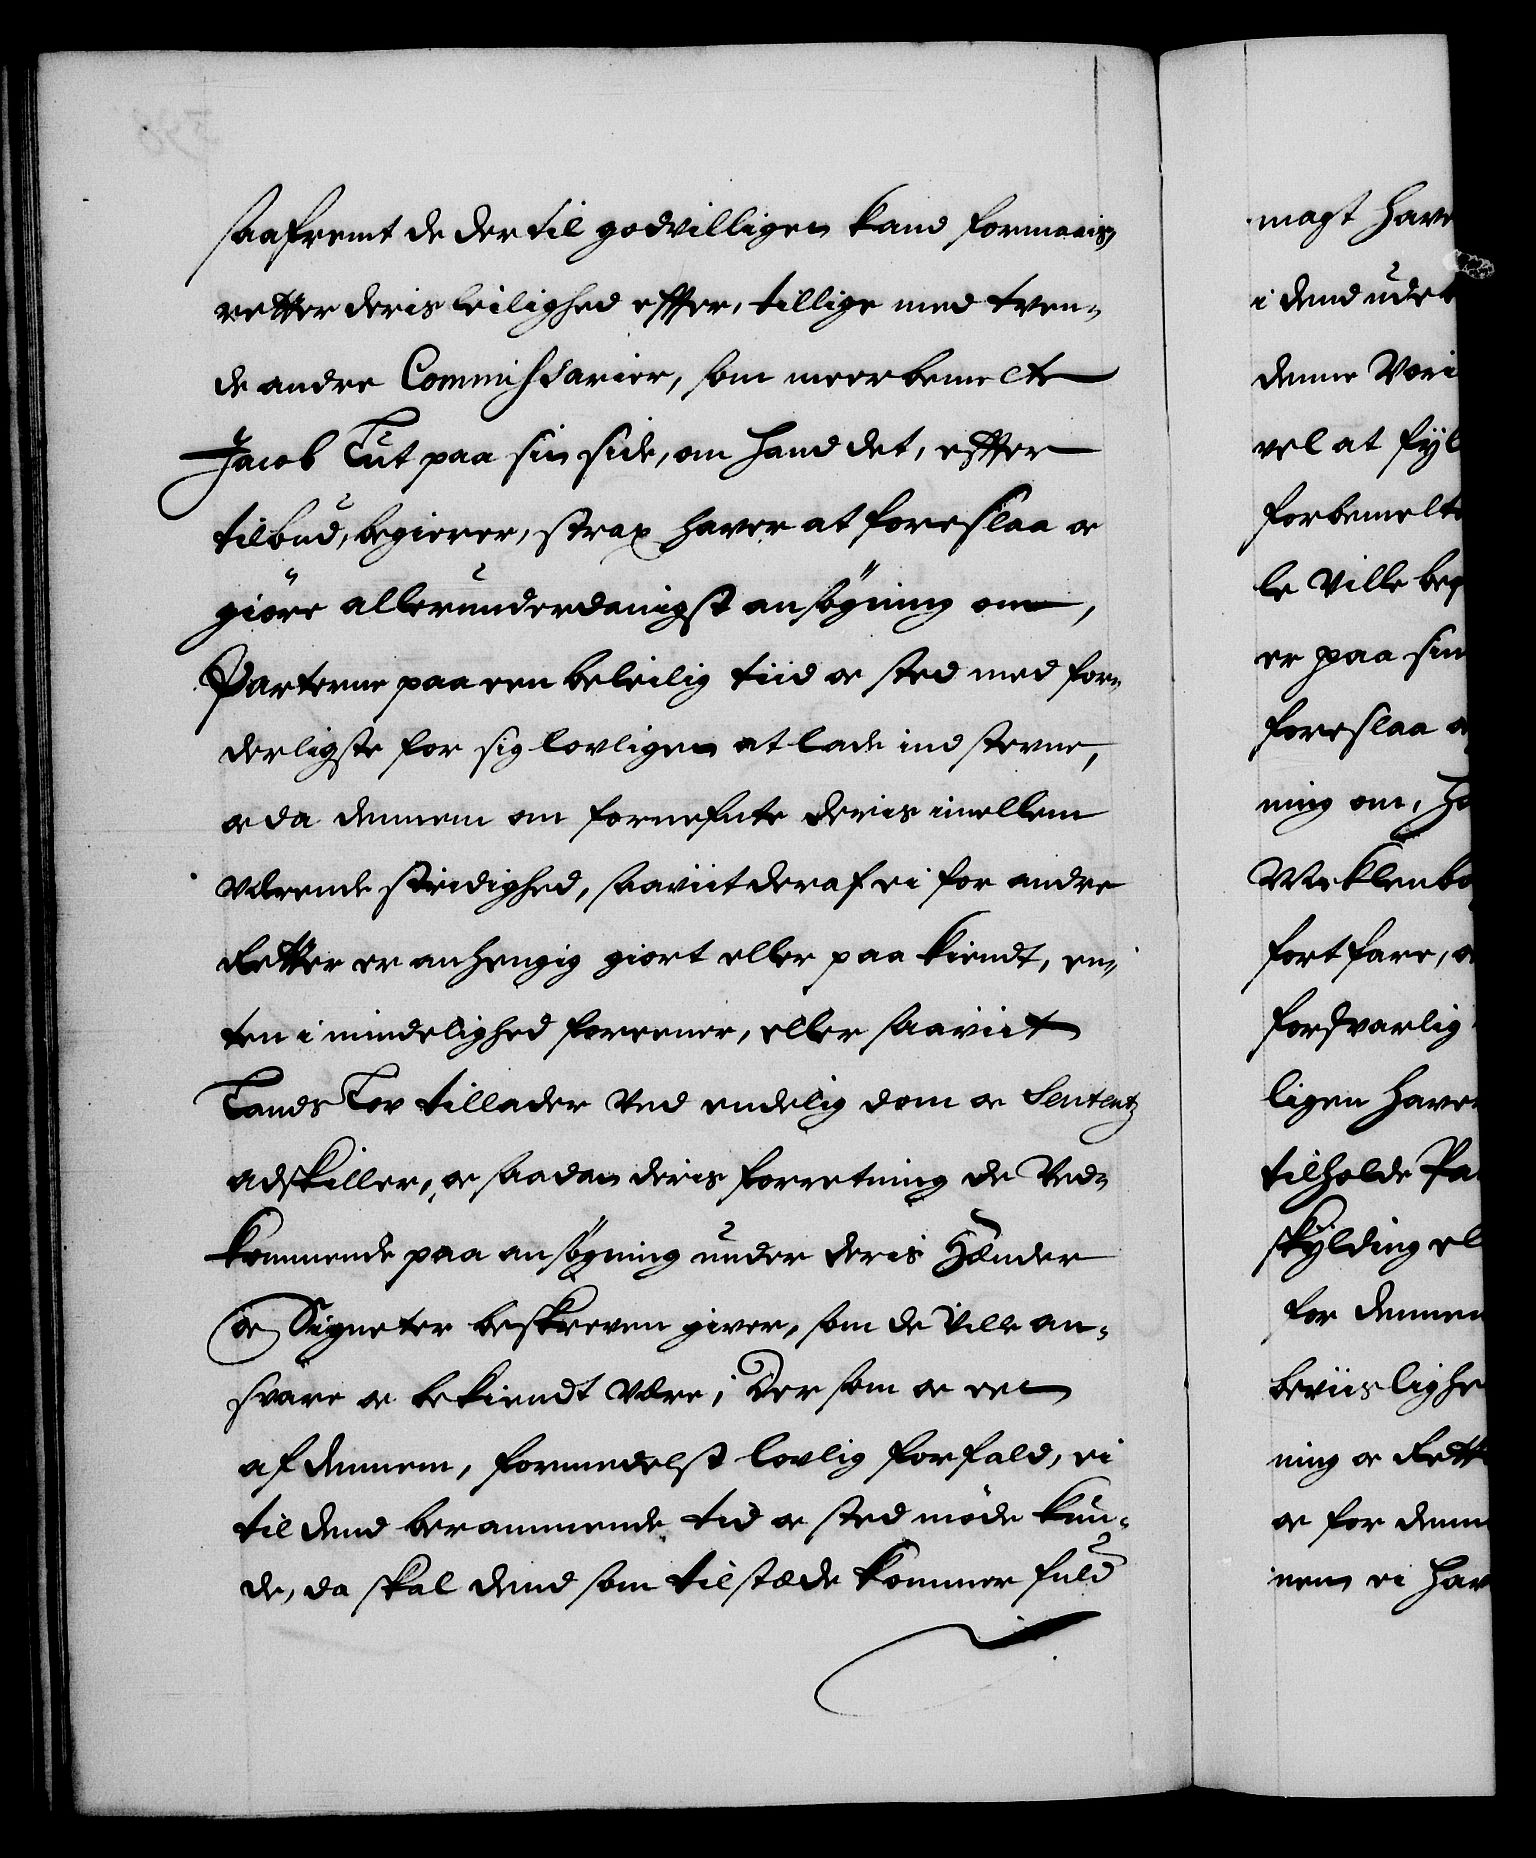 saafremt de der til godvilligen kand formaais,
retter deris leilighed effter, tillige med tven-
de andre Commissarier, som meerbemelte
Jacob Lut paa sin side, om hand det, effter
tilbud, begierer, strax haver at foreslaa oc
giöre allerunderdanigst ansögning om,
Parterne paa een beleilig tiid oc sted med for-
derligste for sig lovligen at lade ind stevne,
oc da dennem om fornefnte deris imellem
Værende stridighed, saaviit deraf ei for andre
Retter er anhengig giort eller paa kiendt, en-
ten i mindelighed foreener, eller saaviit
Lands Lov tillader Ved endelig dom oc Sententz
adskiller, oc saadan deris forretning de Ved-
kommende paa ansögning under deris Hænder
oc Signeter beskreven giver, som de Ville an-
svare oc bekiendt Være; Der som oc een
af dennem, formedelst lovlig forfald, ei
til dend berammende tid oc sted möde kun-
de, da skal dend som tilstæde kommer fuld
magt have
i dend
denne Vori
vel at
forbemelte
le Ville beg
er paa sin
foreslaa
ning om,
Meklenbo
fortfare,
forsvarlig
ligen have
tilholde Pa
skylding el
for dennem
beviislighe
ning oc Rett
oc for denn
nem ei hav